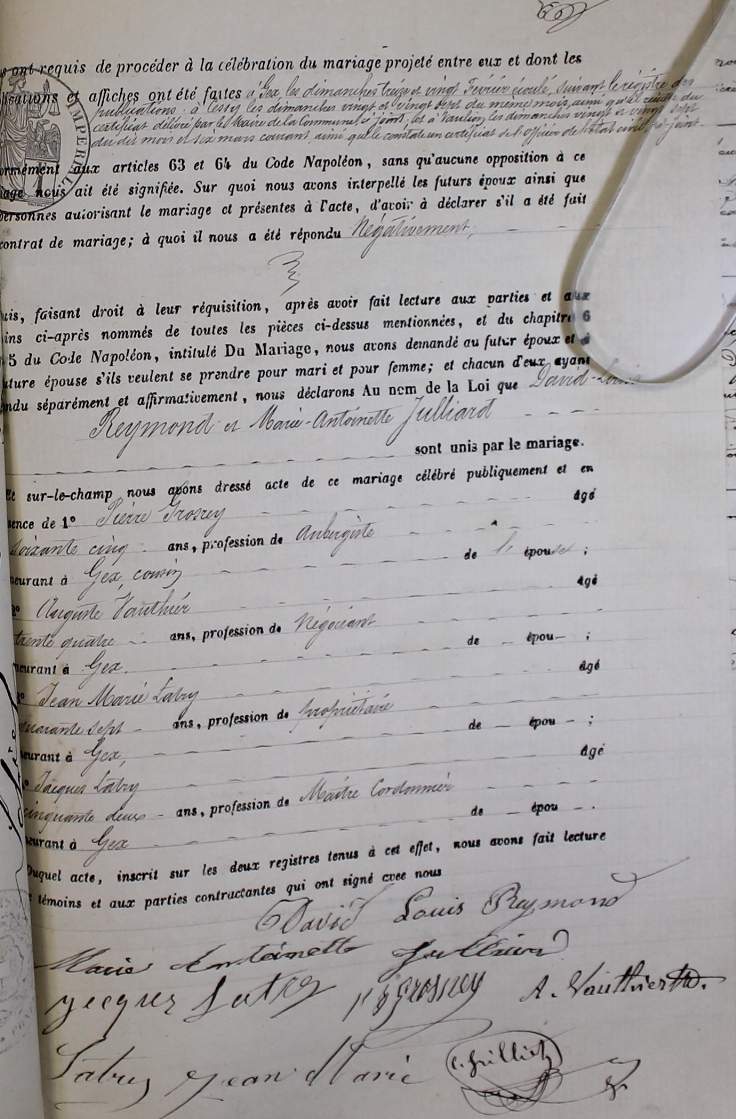 ont requis de procéder à la célébration du mariage projeté entre eux et dont les
et affiches ont été faites à Gex, les dimanches treize et vingt Février écoulé, suivant le registre des
publications, à Lessy les dimanches vingt et vingt sept du même mois, ainsi qu'il résulte du
certificat délivré par le Maire de la Commune ci-joint, et à Vaulion les dimanches vingt et vingt sept
du dit mois et six mars courant ainsi que le constate un certificat de l'officier de l'état civil ci-joint
IMPERIAL
aux articles 63 et 64 du Code Napoléon, sans qu'aucune opposition à ce
nous ait été signifiée. Sur quoi nous avons interpellé les futurs époux ainsi que
personnes autorisant le mariage et présentes à l'acte, d'avoir à déclarer s'il a été fait
contrat de mariage; à quoi il nous a été répondu Négativement,
faisant droit à leur réquisition, après avoir fait lecture aux parties et aux
ci-après nommés de toutes les pièces ci-dessus mentionnées, et du chapitre 6
5 du Code Napoléon, intitulé Du Mariage, nous avons demandé au futur époux et à
épouse s'ils veulent se prendre pour mari et pour femme; et chacun d'eux ayant
séparément et affirmativement, nous déclarons Au nom de la Loi que David-Louis
Reymond et Marie-Antoinette Julliard
sont unis par le mariage.
sur-le-champ nous avons dressé acte de ce mariage célébré publiquement et en
de 1° Pierre Grosrey âgé
soixante cinq ans, profession de Aubergiste
à Gex, cousin de l'épouse ;
Auguste Vauthier âgé
trente quatre ans, profession de Négociant
à Gex. de épou ;
Jean Marie Latry âgé
quarante sept ans, profession de propriétaire
à Gex, de épou ;
Jacques Latry âgé
cinquante deux ans, profession de Maître Cordonnier
à Gex de épou .
Duquel acte, inscrit sur les deux registres tenus à cet effet, nous avons fait lecture
témoins et aux parties contractantes qui ont signé avec nous
David Louis Reymond
Marie Antoinette Julliard
Jacques Latry Grosrey A. Vauthier
Latry Jean Marie